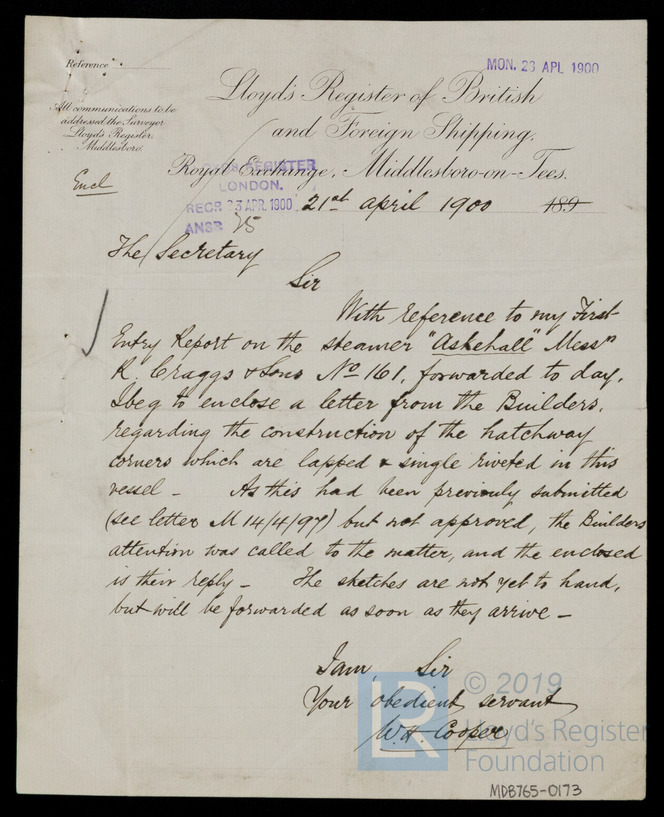 Reference
MON. 23 APL 1900
Lloyd's Register of British
and Foreign Shipping.
All communications to be
addressed the Surveyor
Lloyds Register,
Middlesboro.
Royal Exchange, Middlesboro-on-Tees.
REGISTER
LONDON.
RECR 23 APR. 1900
ANSR 25
Encl
21st April 1900 189
The Secretary
Sir
With reference to my First
Entry Report on the steamer "Askehall" Messrs
R. Craggs & Sons No 161, forwarded to day,
I beg to enclose a letter from the Builders,
regarding the construction of the hatchway
corners which are lapped & single riveted in this
vessel - As this had been previously submitted
(see letter M 14/4/97) but not approved, the Builders
attention was called to the matter, and the enclosed
is their reply - The sketches are not yet to hand,
but will be forwarded as soon as they arrive -
I am, Sir
Your obedient servant
W.H. Cooper
LR © 2019
Lloyd's Register
Foundation
MDB765-0173